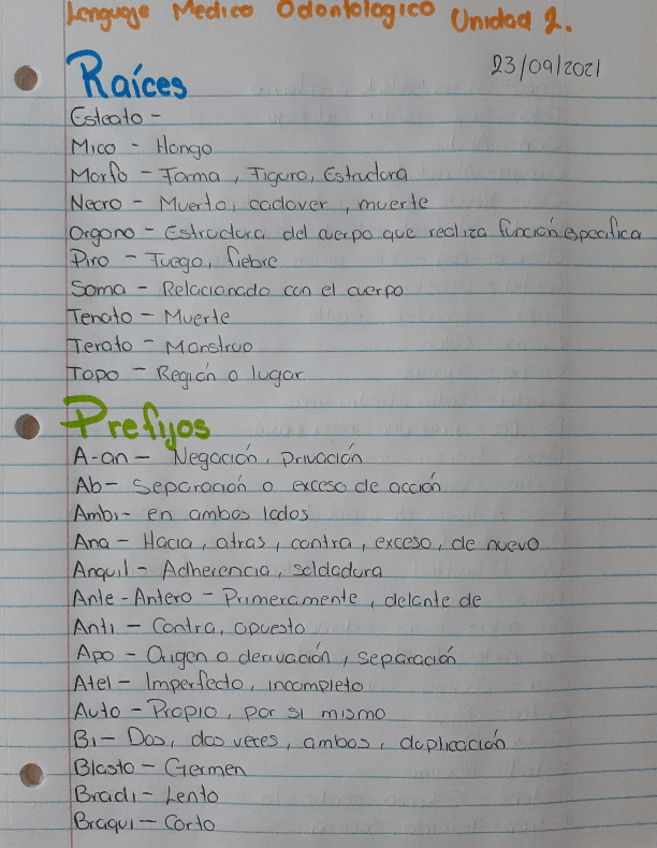 Lenguaje Medico Odontologico Unidad 2.
23/09/2021
Raíces
Esteato -
Mico - Hongo
Morfo - Forma, Figura, Estructura
Necro - Muerto, cadaver, muerte
Organo - Estructura del cuerpo que realiza función especifica
Piro - Fuego, fiebre
Soma - Relacionado con el cuerpo
Tenato - Muerte
Terato - Monstruo
Topo - Región o lugar
Prefijos
A-an - Negación, privación
Ab - Separación o exceso de acción
Ambi - en ambos lados
Ana - Hacia, atras, contra, exceso, de nuevo
Anquil - Adherencia, soldadura
Ante - Antero - Primeramente, delante de
Anti - Contra, opuesto
Apo - Origen o derivación, separación
Atel - Imperfecto, incompleto
Auto - Propio, por si mismo
Bi - Dos, dos veces, ambos, duplicación
Blasto - Germen
Bradi - Lento
Braqui - Corto